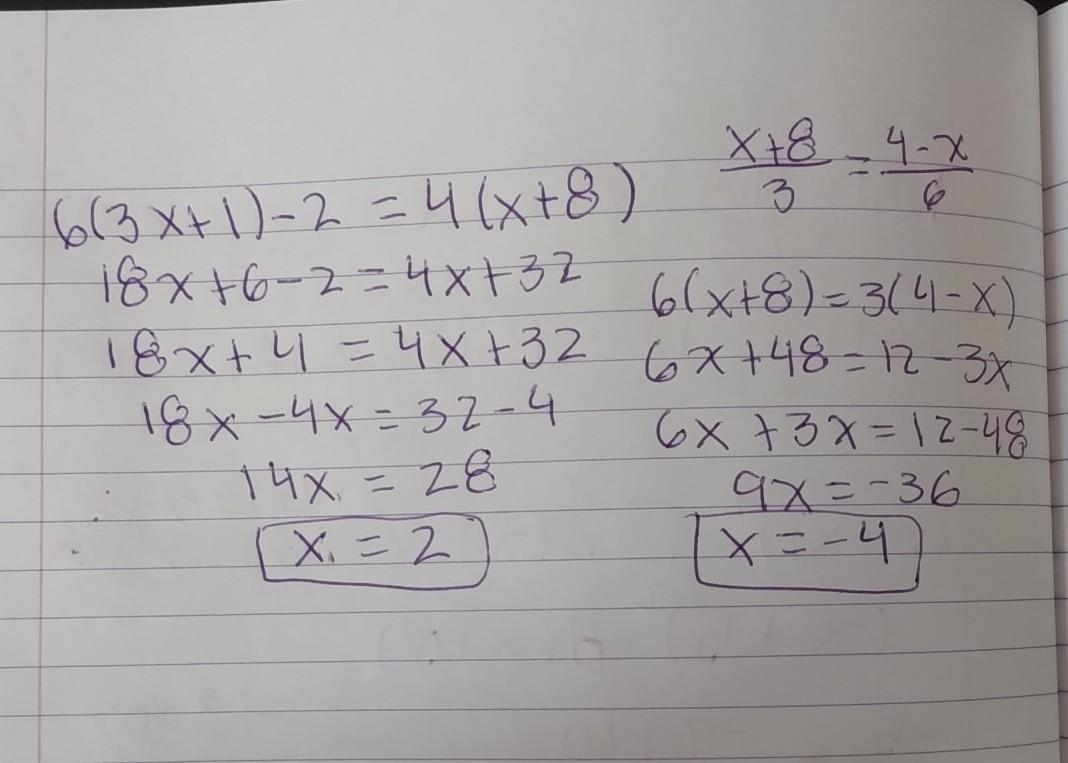 6(3x+1)-2 = 4(x+8)
18x+6-2=4x+32
18x+4 = 4x+32
18x-4x=32-4
14x = 28
x = 2
x+8/3 = 4-x/6
6(x+8)=3(4-x)
6x+48=12-3x
6x+3x=12-48
9x=-36
x=-4